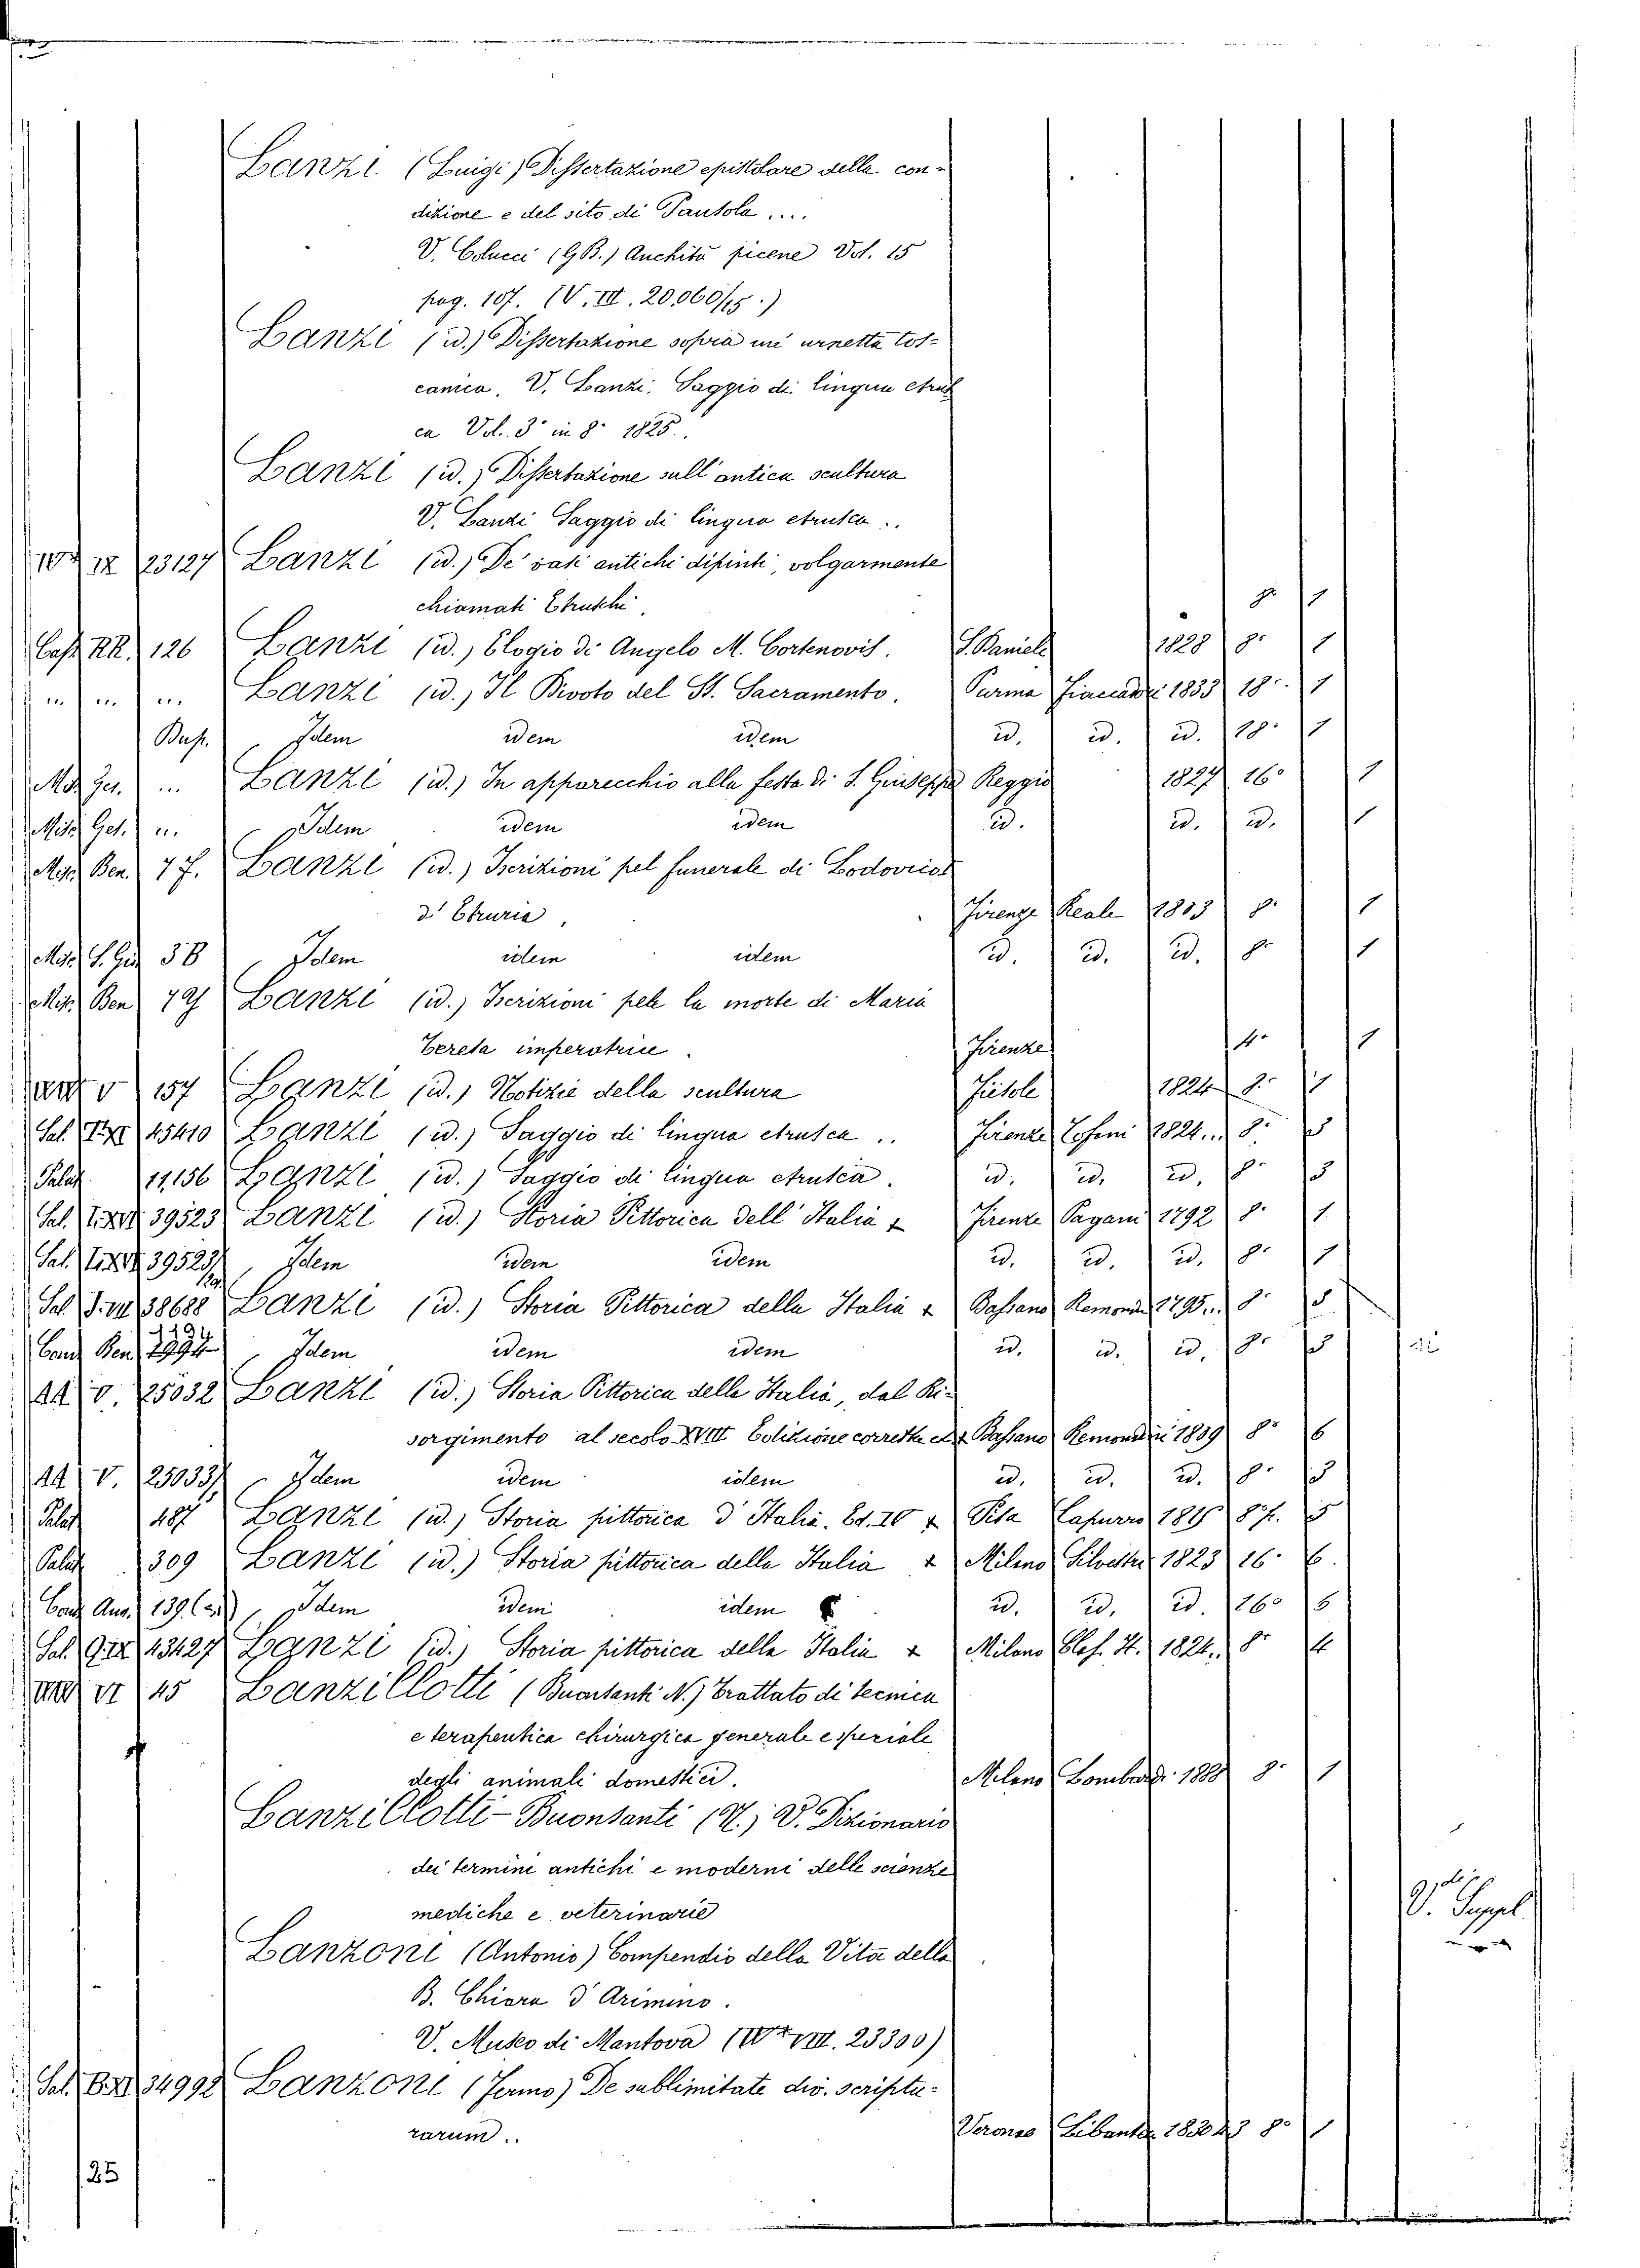 Lanzi. (Luigi) Dissertazione epistolare della con-
dizione e del sito di Pausola ....
V. Colucci (GB.) Anchità picene Vol. 15
pag. 107. (V. III. 20,060/15.)
Lanzi (id.) Dissertazione sopra un' urnetta tos-
canica, V. Lanzi, Saggio di lingua etrus
ca Vol. 3° in 8° 1825..
Lanzi (id.) Dissertazione sull' antica scultura
V. Lanzi Saggio di lingua etrusca..
IX 23127 Lanzi (id.) De' vasi antichi dipinti, volgarmente
chiamati Etruschi. 8° 1
Cass. RR. 126 Lanzi (id.) Elogio di Angelo M. Cortenovis. S. Daniele 1828 8° 1
... ... ... Lanzi (id.) Il Bivoto del SS. Sacramento. Parma Fiaccadori 1833 18° 1
Bus. Idem idem idem id. id. id. 18° 1
Mis Ges. ... Lanzi (id.) In apparecchio alla festa di S. Giuseppe Reggio 1827 16° 1
Mis Ges. ... Idem idem idem id. id. id. 1
Mis. Ben. 77. Lanzi (id.) Iscrizioni pel funerale di Lodovico I
d' Etruria, Firenze Reale 1803 8° 1
Mis. S. Giu 38 Idem idem idem id. id. id. 8° 1
Mis. Ben 79 Lanzi (id.) Iscrizioni pele la morte di Maria
Tereta imperatrice. Firenze 4° 1
V 157 Lanzi (id.) Notizie della scultura Fiesole 1824 8° 1
Sal. 45410 Lanzi (id.) Saggio di lingua etrusca .. Firenze Tofani 1824.. 8° 3
Palat. 11,156 Lanzi (id.) Saggio di lingua etrusca. id. id. id. 8° 3
Sal. 39523 Lanzi (id.) Storia Pittorica dell' Italia & Firenze Pagani 1792 8° 1
Sal. 39523/ Idem idem idem id. id. id. 8° 1
Sal. 38688 Lanzi (id.) Storia Pittorica della Italia & Bassano Remondi 1795.. 8° 3
Cand Ben. Idem idem idem id. id. id. 8° 3
V. 25032 Lanzi (id.) Storia Pittorica della Italia, dal Ri-
sorgimento al secolo XVIII Edizione corretta ec & Bassano Remondini 1809 8° 6
V. 25033/ Idem idem idem id. id. id. 8° 3
Palat 487 Lanzi (id.) Storia pittorica d' Italia. Ed. 20 & Pisa Capurro 181 8° f. 5
Palat 309 Lanzi (id.) Storia pittorica della Italia & Milano Silvestri 1823 16° 6.
Cand Aug. 139. Idem idem idem id. id. id. 16° 6
Sal. 43427 Lanzi (id.) Storia pittorica della Italia & Milano Clas. It. 1824. 8° 4
VI 45 Lanzillotti (Buonsanti N.) Trattato di tecnica
e terapeutica chirurgica generale e speciale
degli animali domestici. Milano Lombardi 188 8° 1
Lanzillotti-Buonsanti (N.) V. Dizionario
dei termini antichi e moderni delle scienze
mediche e veterinarie V. Suppl
Lanzoni (Antonio) Compendio della Vita della
B. Chiara d' Arimino.
V. Museo di Mantova (VIII. 23300)
Sal. 34992 Lanzoni (Fermo) De sublimitate div. scriptu-
rarum.. Veronae Libanti 8° 1
25